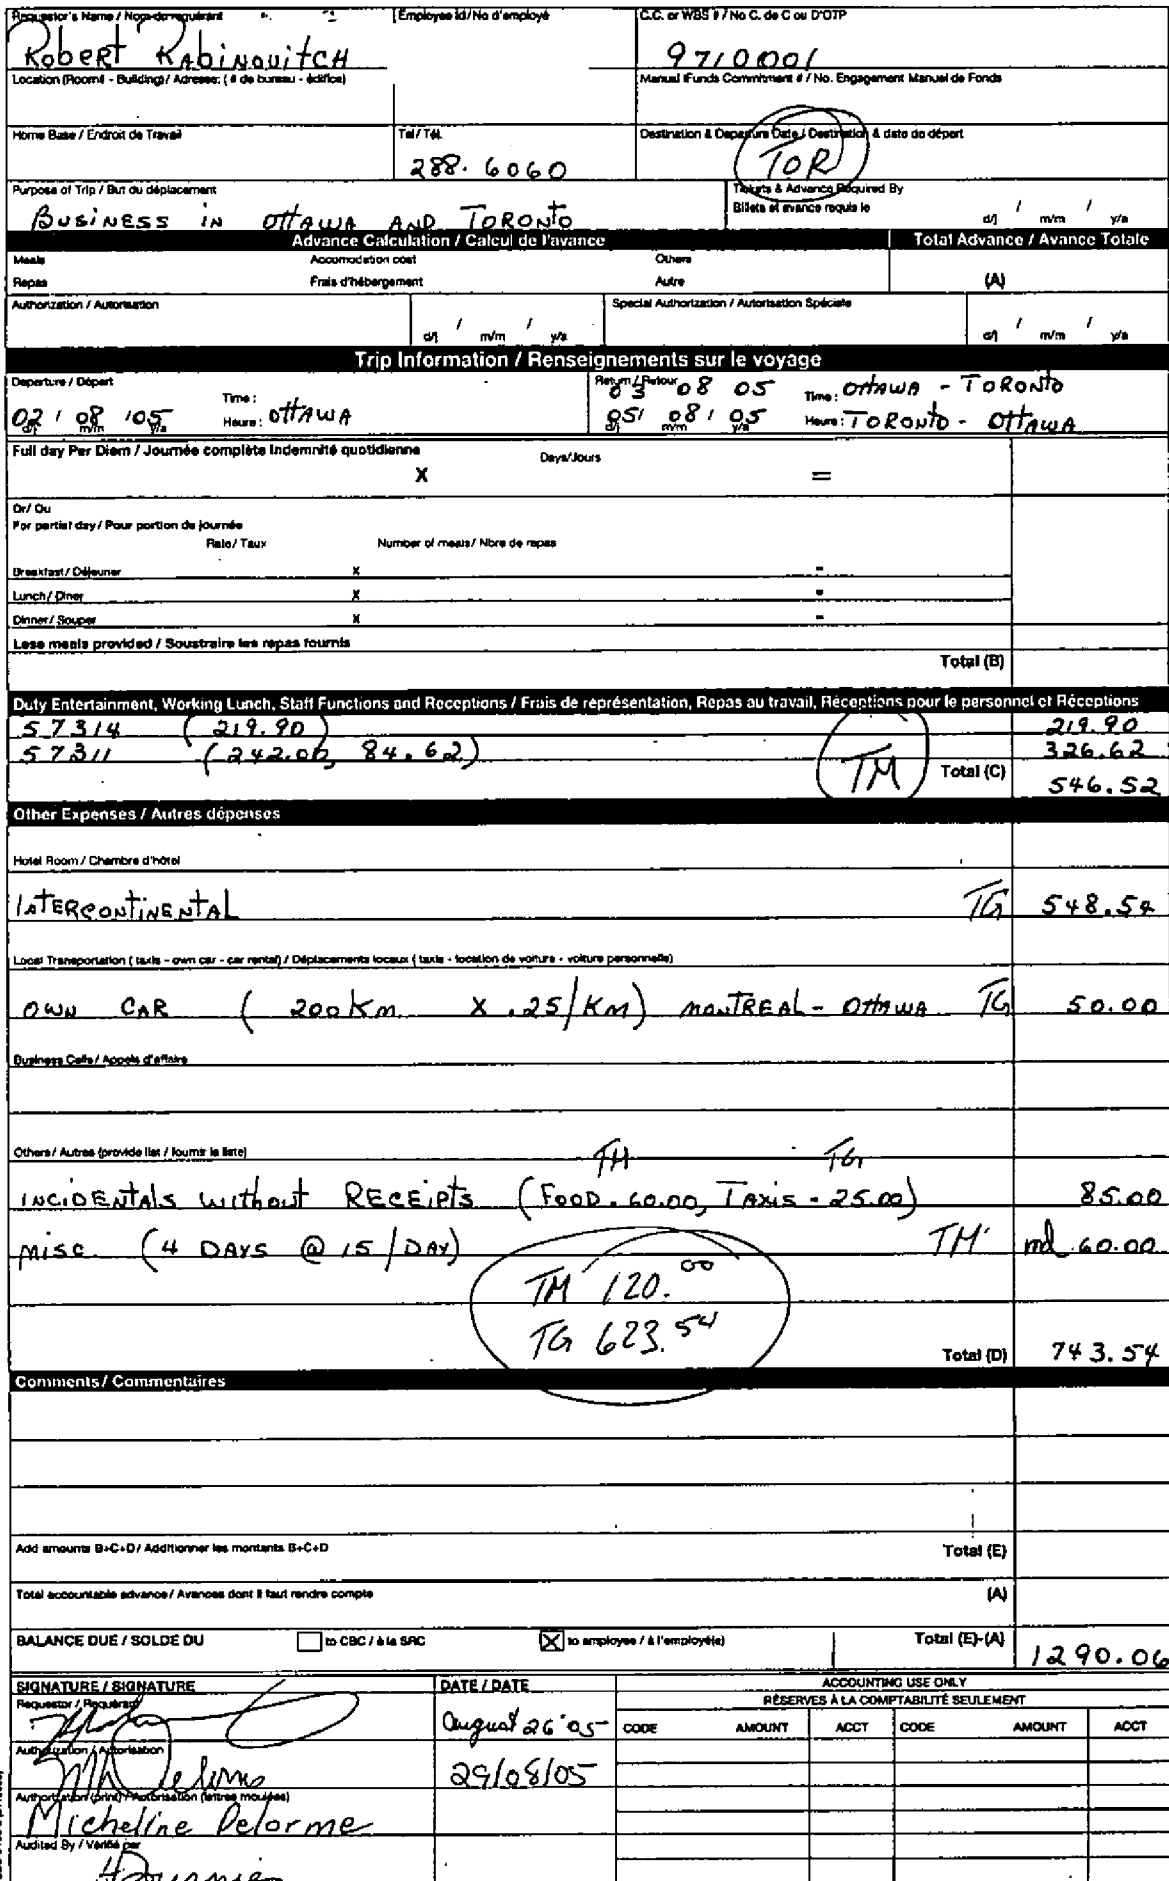 Requestor's Name / Nom du requérant
Employee Id/No d'employé
C.C. or WBS # / No C. de C ou D'OTP
Robert Rabinovitch
9710001
Location (Room# - Building) / Adresse: (# de bureau - édifice)
Manual Funds Commitment # / No. Engagement Manuel de Fonds
Home Base / Endroit de Travail
Tel / Tél.
Destination & Departure Date / Destination & date de départ
288.6060
TOR
Purpose of Trip / But du déplacement
Tickets & Advance Required By
Billets et avance requis le
d/j / m/m / y/a
BUSINESS IN OTTAWA AND TORONTO
Advance Calculation / Calcul de l'avance
Total Advance / Avance Totale
Meals
Accomodation cost
Others
Repas
Frais d'hébergement
Autre
(A)
Authorization / Autorisation
Special Authorization / Autorisation Spéciale
d/j / m/m / y/a
d/j / m/m / y/a
Trip Information / Renseignements sur le voyage
Departure / Départ
Return / Retour 03 08 05
Time: OTTAWA - TORONTO
02 / 08 / 05
d/j m/m y/a
Time:
Heure: OTTAWA
05 / 08 / 05
d/j m/m y/a
Heure: TORONTO - OTTAWA
Full day Per Diem / Journée complète Indemnité quotidienne
Days/Jours
X =
Or/ Ou
For partial day / Pour portion de journée
Rate / Taux
Number of meals / Nbre de repas
Breakfast / Déjeuner x =
Lunch / Diner x =
Dinner / Souper x =
Less meals provided / Soustraire les repas fournis
Total (B)
Duty Entertainment, Working Lunch, Staff Functions and Receptions / Frais de représentation, Repas au travail, Réceptions pour le personnel et Réceptions
57314 (219.90) 219.90
57311 (242.00, 84.62) 326.62
TM Total (C) 546.52
Other Expenses / Autres dépenses
Hotel Room / Chambre d'hôtel
INTERCONTINENTAL TG 548.54
Local Transportation ( taxis - own car - car rental) / Déplacements locaux ( taxis - location de voiture - voiture personnelle)
OWN CAR ( 200 Km X .25/Km) MONTREAL - OTTAWA TG 50.00
Business Calls / Appels d'affaire
Others / Autres (provide list / fournir la liste)
TM TG
INCIDENTALS without RECEIPTS (FOOD - 60.00, TAXIS - 25.00) 85.00
misc (4 DAYS @ 15 / DAY) TM md 60.00
TM 120.00
TG 623.54
Total (D) 743.54
Comments / Commentaires
Add amounts B+C+D / Additionner les montants B+C+D
Total (E)
Total accountable advance / Avances dont il faut rendre compte
(A)
BALANCE DUE / SOLDE DU
to CBC / à la SRC
to employee / à l'employé(e)
Total (E)-(A)
1290.06
SIGNATURE / SIGNATURE
DATE / DATE
ACCOUNTING USE ONLY
RÉSERVES À LA COMPTABILITÉ SEULEMENT
Requestor / Requérant
August 26 '05
CODE AMOUNT ACCT CODE AMOUNT ACCT
Authorization / Autorisation
M Delorme
29/08/05
Authorization (print) / Autorisation (lettres moulées)
Micheline Delorme
Audited By / Vérifié par